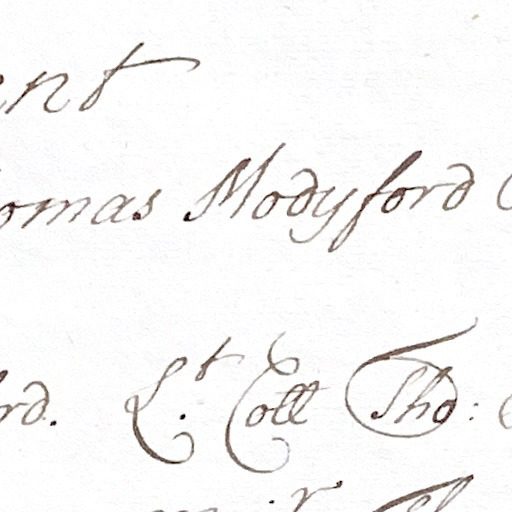 omas Modyford
rd. L.t Coll Tho: